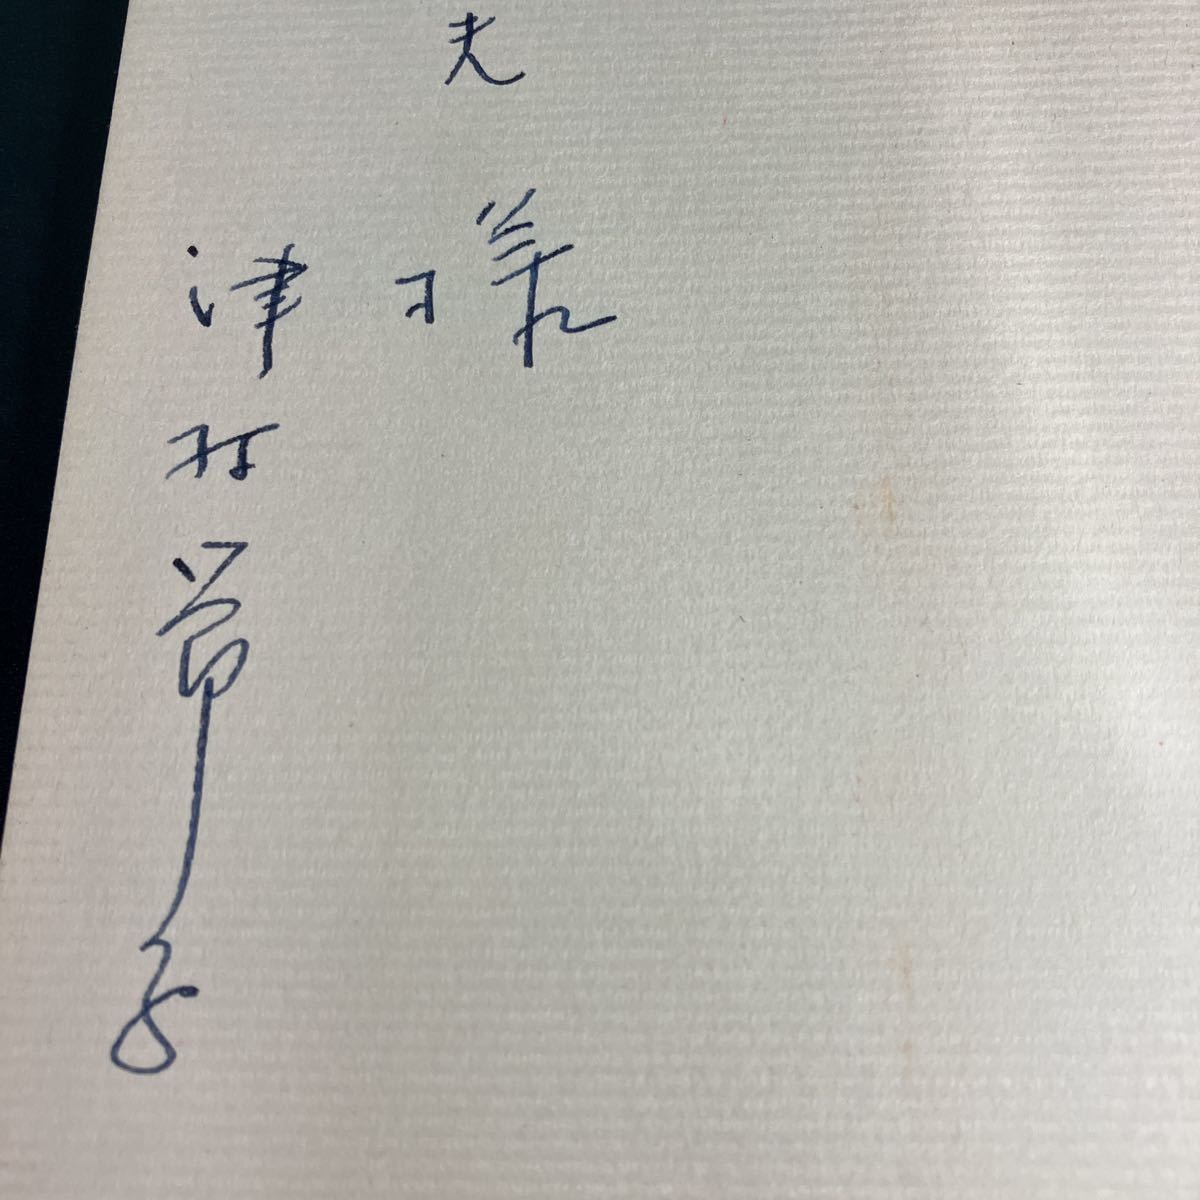 夫様
津村節子